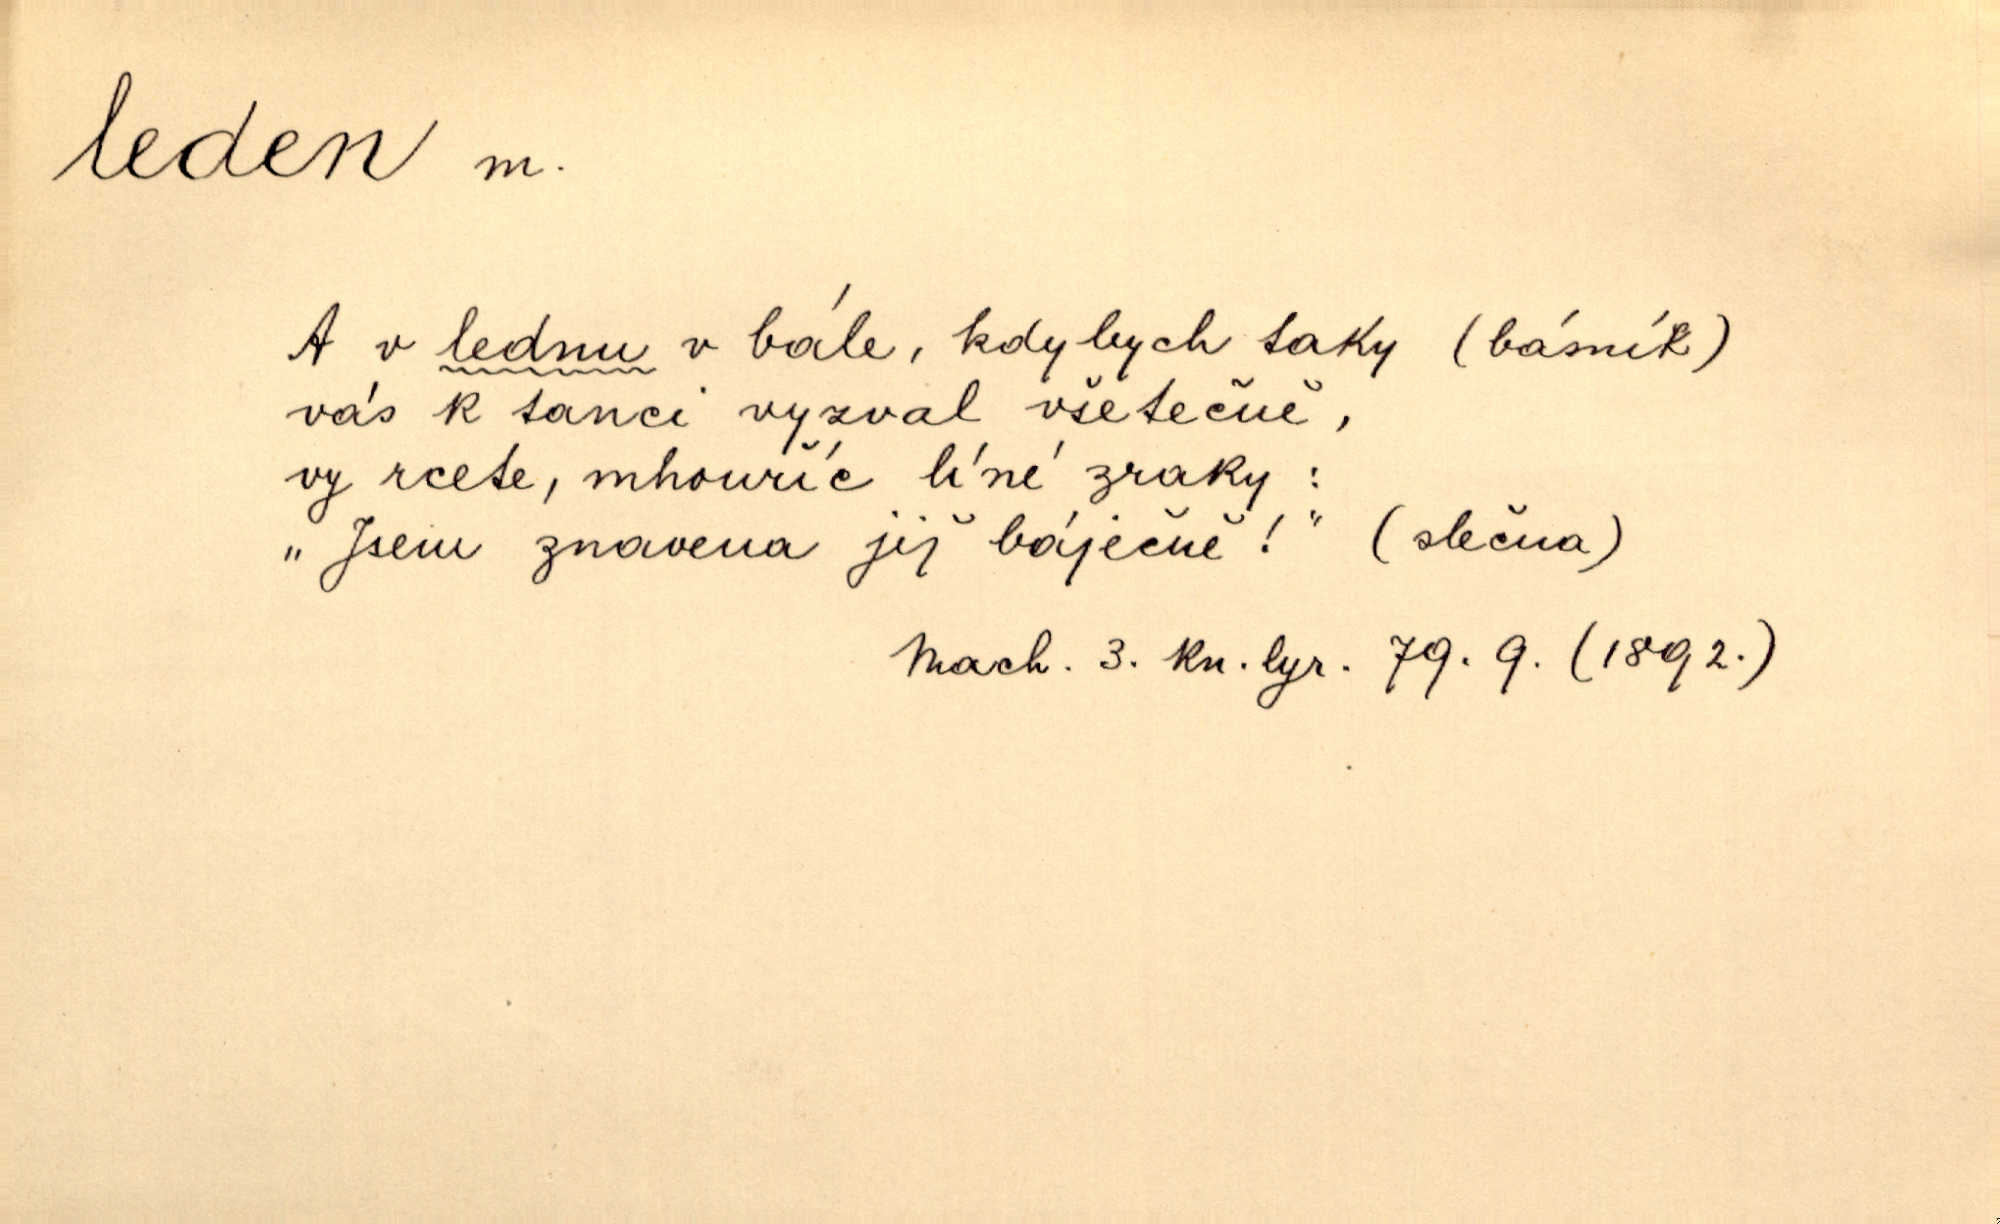 leden m.
A v lednu v bále, kdybych taky (básník)
vás k tanci vyzval všetečně,
vy rcete, mhouříc líné zraky:
„Jsem znavena již báječně!" (slečna)
Mach. 3. kn. lyr. 79. 9. (1892.)